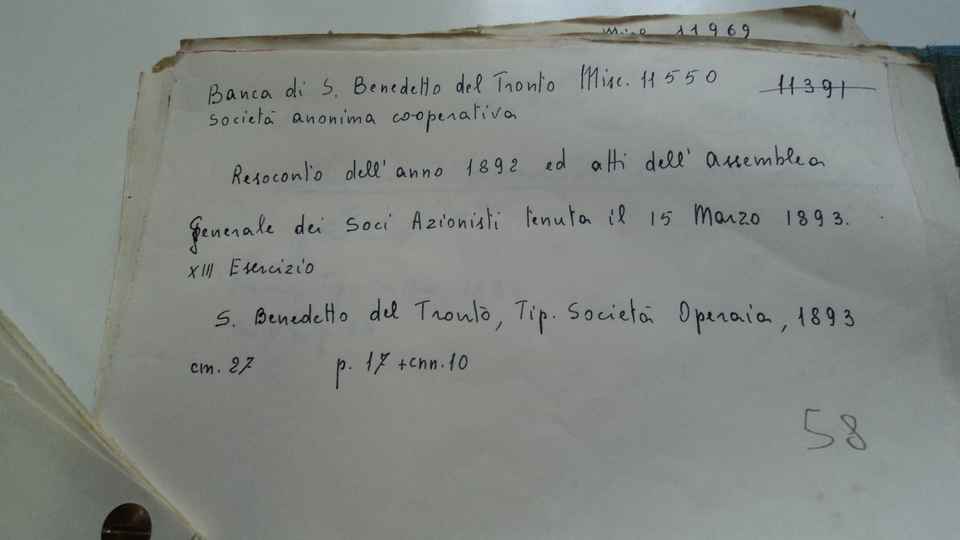 Misc. 11969
Banca di S. Benedetto del Tronto Misc. 11550 11391
Società anonima cooperativa
Resoconto dell'anno 1892 ed atti dell'Assemblea
Generale dei Soci Azionisti tenuta il 15 Marzo 1893.
XIII Esercizio
S. Benedetto del Tronto, Tip. Società Operaia, 1893
cm. 27 p. 17 + cnn. 10
58